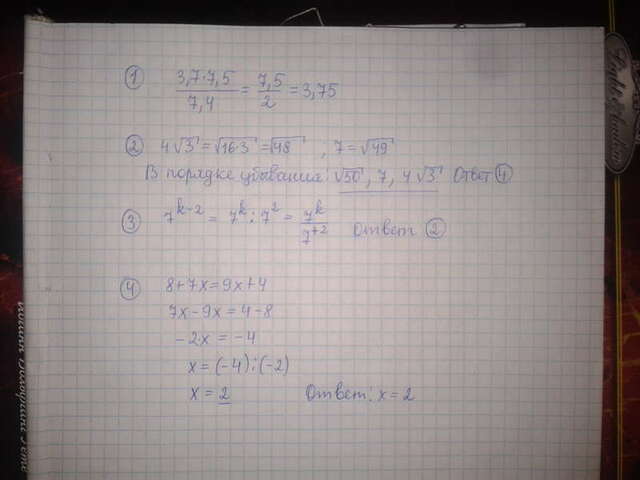 ① 3,7·7,5 / 7,4 = 7,5 / 2 = 3,75
② 4√3 = √16·3 = √48 ; 7 = √49
В порядке убывания: √50, 7, 4√3 Ответ ④
③ 7^(k-2) = 7^k : 7^2 = 7^k / 7^(+2) Ответ ②
④ 8+7x=9x+4
7x-9x=4-8
-2x=-4
x=(-4):(-2)
x=2 Ответ: x=2